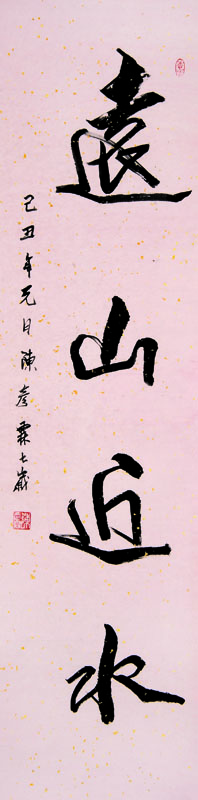 遠山近水
己丑年元月陳彥霖七歲